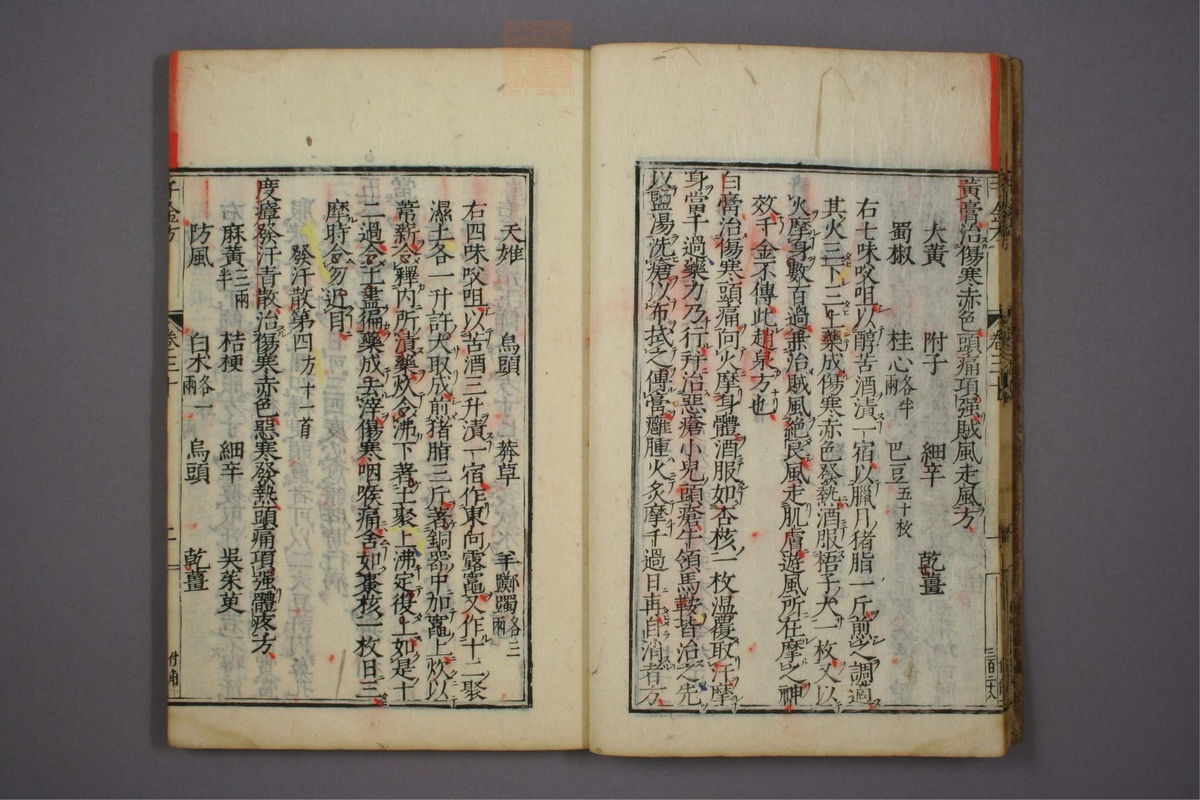 黃膏治傷寒赤色頭痛項强賊風走風方
大黃 附子 細辛 乾薑
蜀椒 桂心各半兩 巴豆五十枚
右七味㕮咀以醇苦酒漬一宿以臘月猪脂一斤煎之調適
其火三下三上藥成傷寒赤色發熱酒服梧子大一枚又以
火摩身數百過兼治賊風絶良風走肌膚遊風所在摩之神
效千金不傳此趙泉方也
白膏治傷寒頭痛向火摩身體酒服如杏核一枚温覆取汗摩
身當千過藥力乃行并治惡瘡小兒頭瘡牛領馬鞍皆治之先
以鹽湯洗瘡以布拭之傅膏癰腫火炙摩千過日再自消者方
天雄 烏頭 莽草 羊躑躅各三兩
右四味㕮咀以苦酒三升漬一宿作東向露竈又作十二聚
濕土各一升許大取成煎猪脂三斤著銅器中加竈上炊以
葦薪令釋内所漬藥炊令沸下著土聚上沸定復上如是十
二過令土盡徧藥成去滓傷寒咽喉痛含如棗核一枚日三
摩時令勿近目
發汗散第四方十一首
度瘴發汗青散治傷寒赤色惡寒發熱頭痛項强體疼方
麻黃三兩半 桔梗 細辛 吳茱萸
防風 白朮各一兩 烏頭 乾薑
千金方 卷三十 二